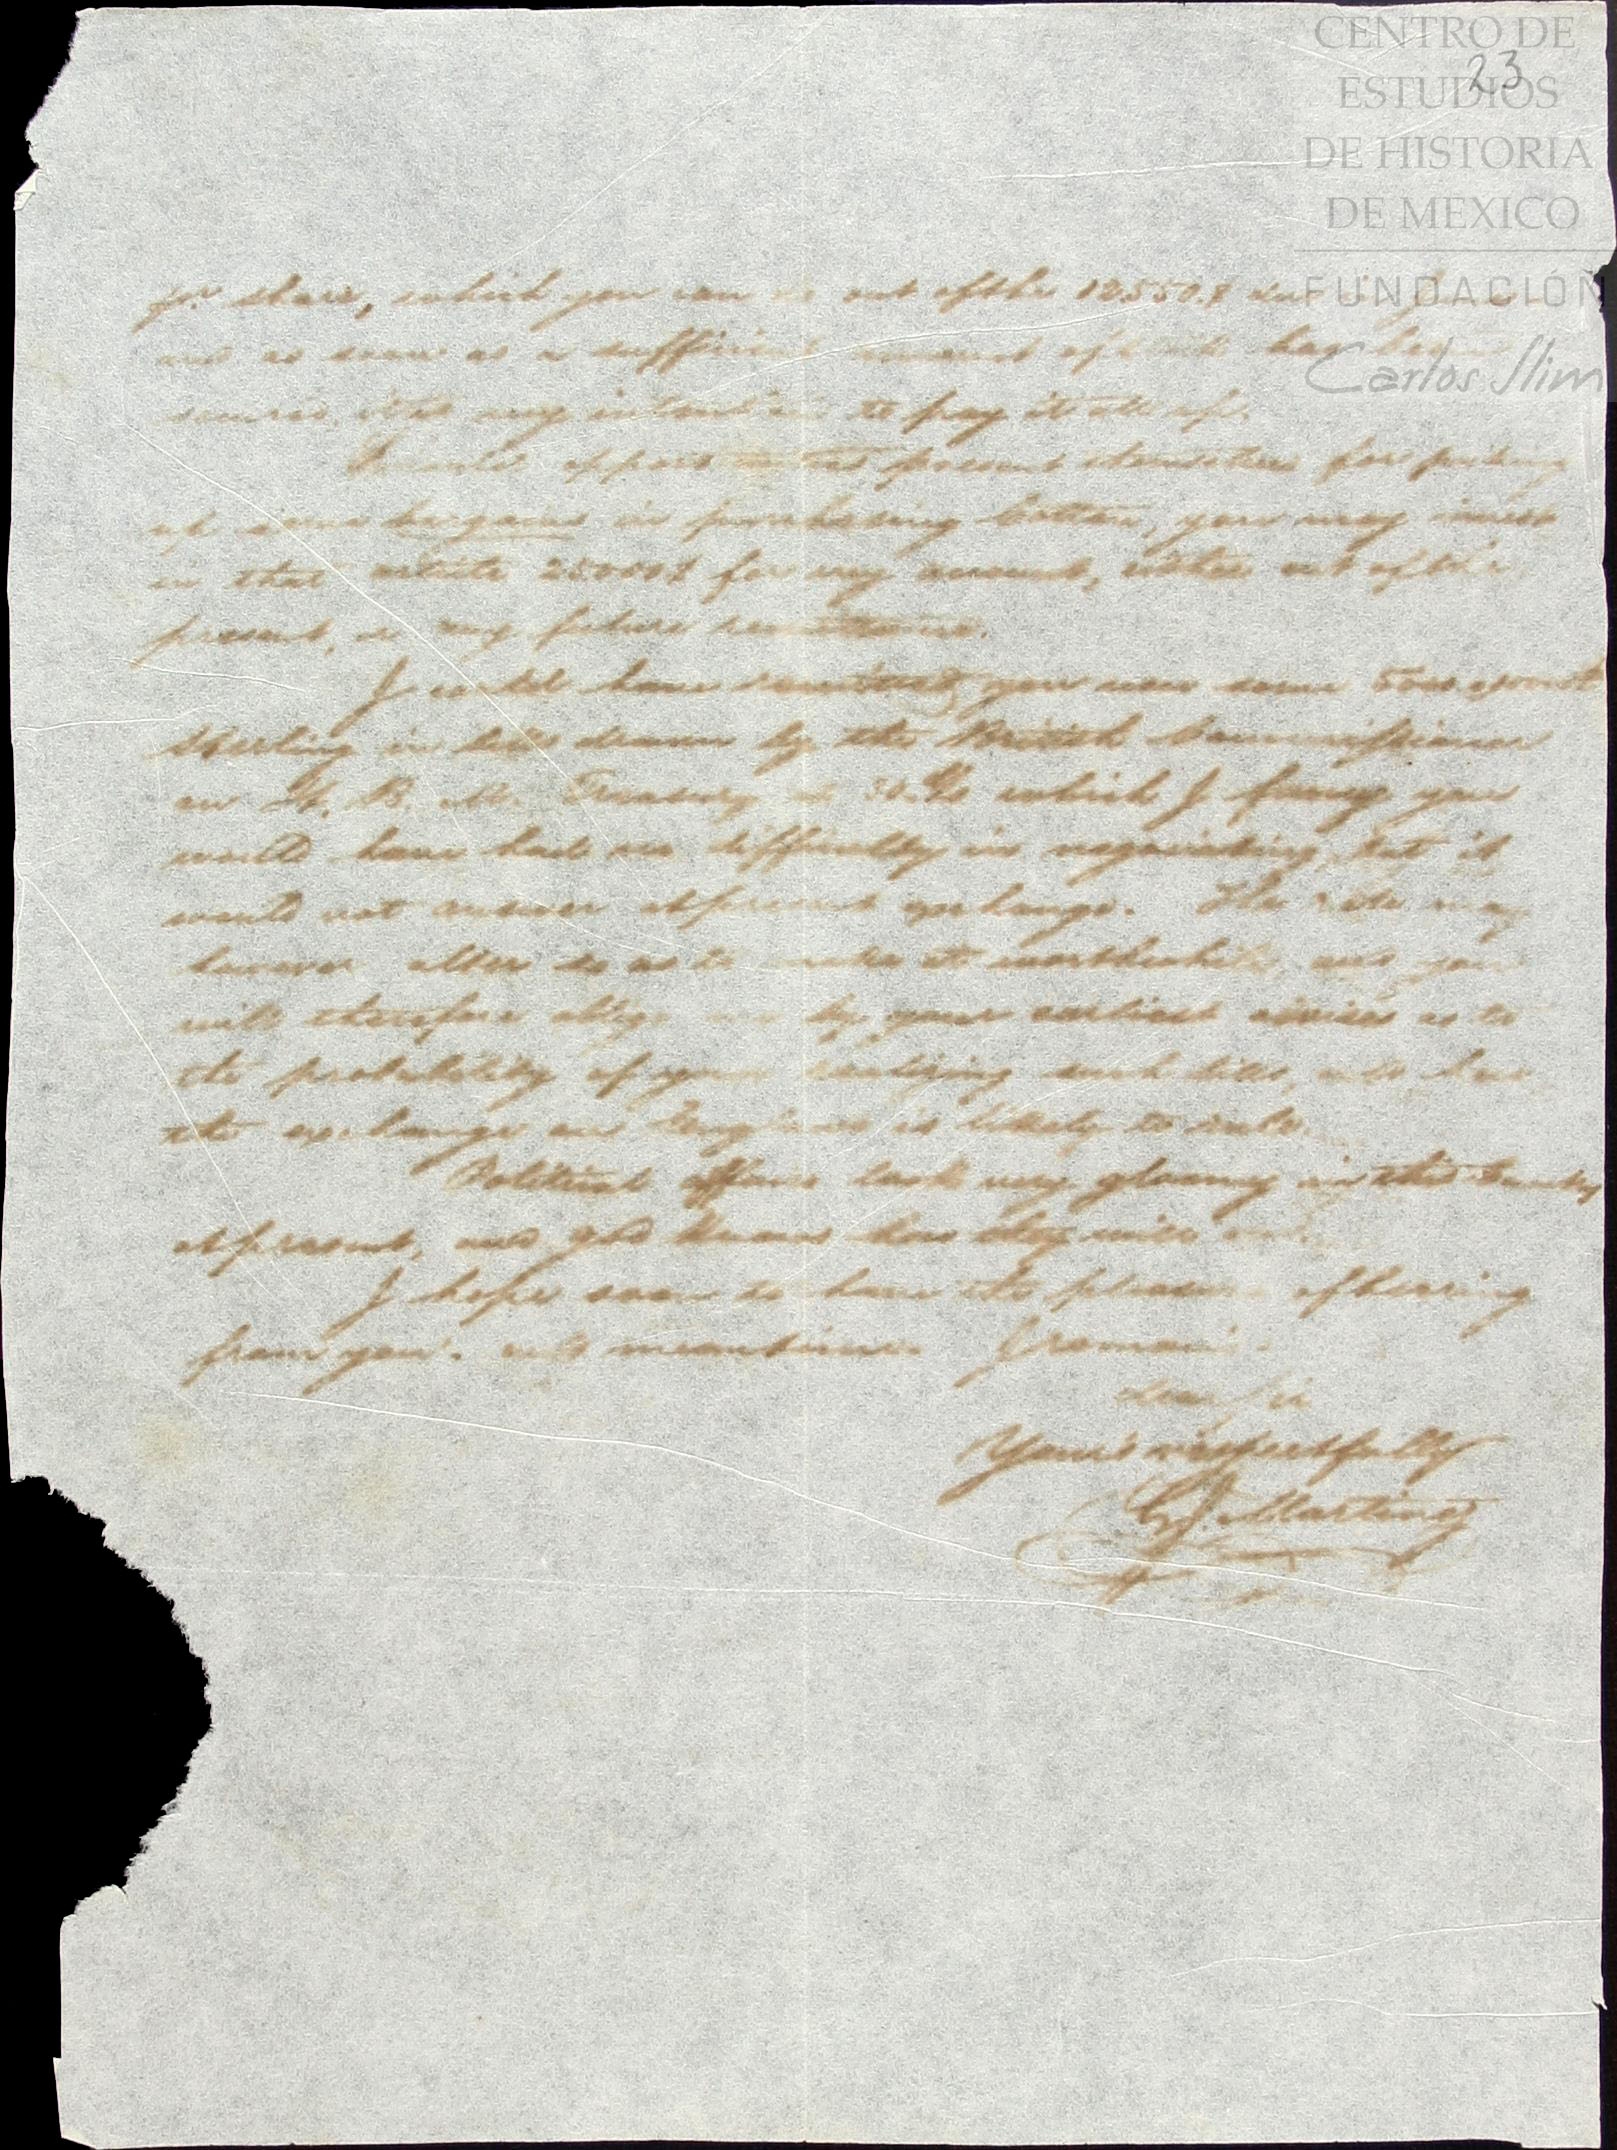 CENTRO DE
23
ESTUDIOS
DE HISTORIA
DE MEXICO
FUNDACIÓN
Carlos Slim
pr. share, which you can out of the 12550.$
and as soon as a sufficient amount of has been
secured, it is my intention to pay it all up.
Should opportunities present themselves for picking
up some bargains in purchasing Cotton, you may invest
in that article 25000$ for my account, either out of the
present, or my future remittances.
I would have remitted you now some 5000 pounds
Sterling in bills drawn by the British Commissioner
on H. B. M. Treasury at 30. which I fancy you
would have had no difficulty in negociating, but it
would not answer at present exchange. The rate may
however alter so as to make it worthwhile, and you
will therefore oblige me by your earliest advices as to
the probability of your realizing such bills, and how
the exchange on England is likely to rule.
Political affairs look very gloomy in this Country
at present, and God knows how they will end.
I hope soon to have the pleasure of hearing
from you. and meantime I remain.
dear Sir
Your's respectfully
Martinez